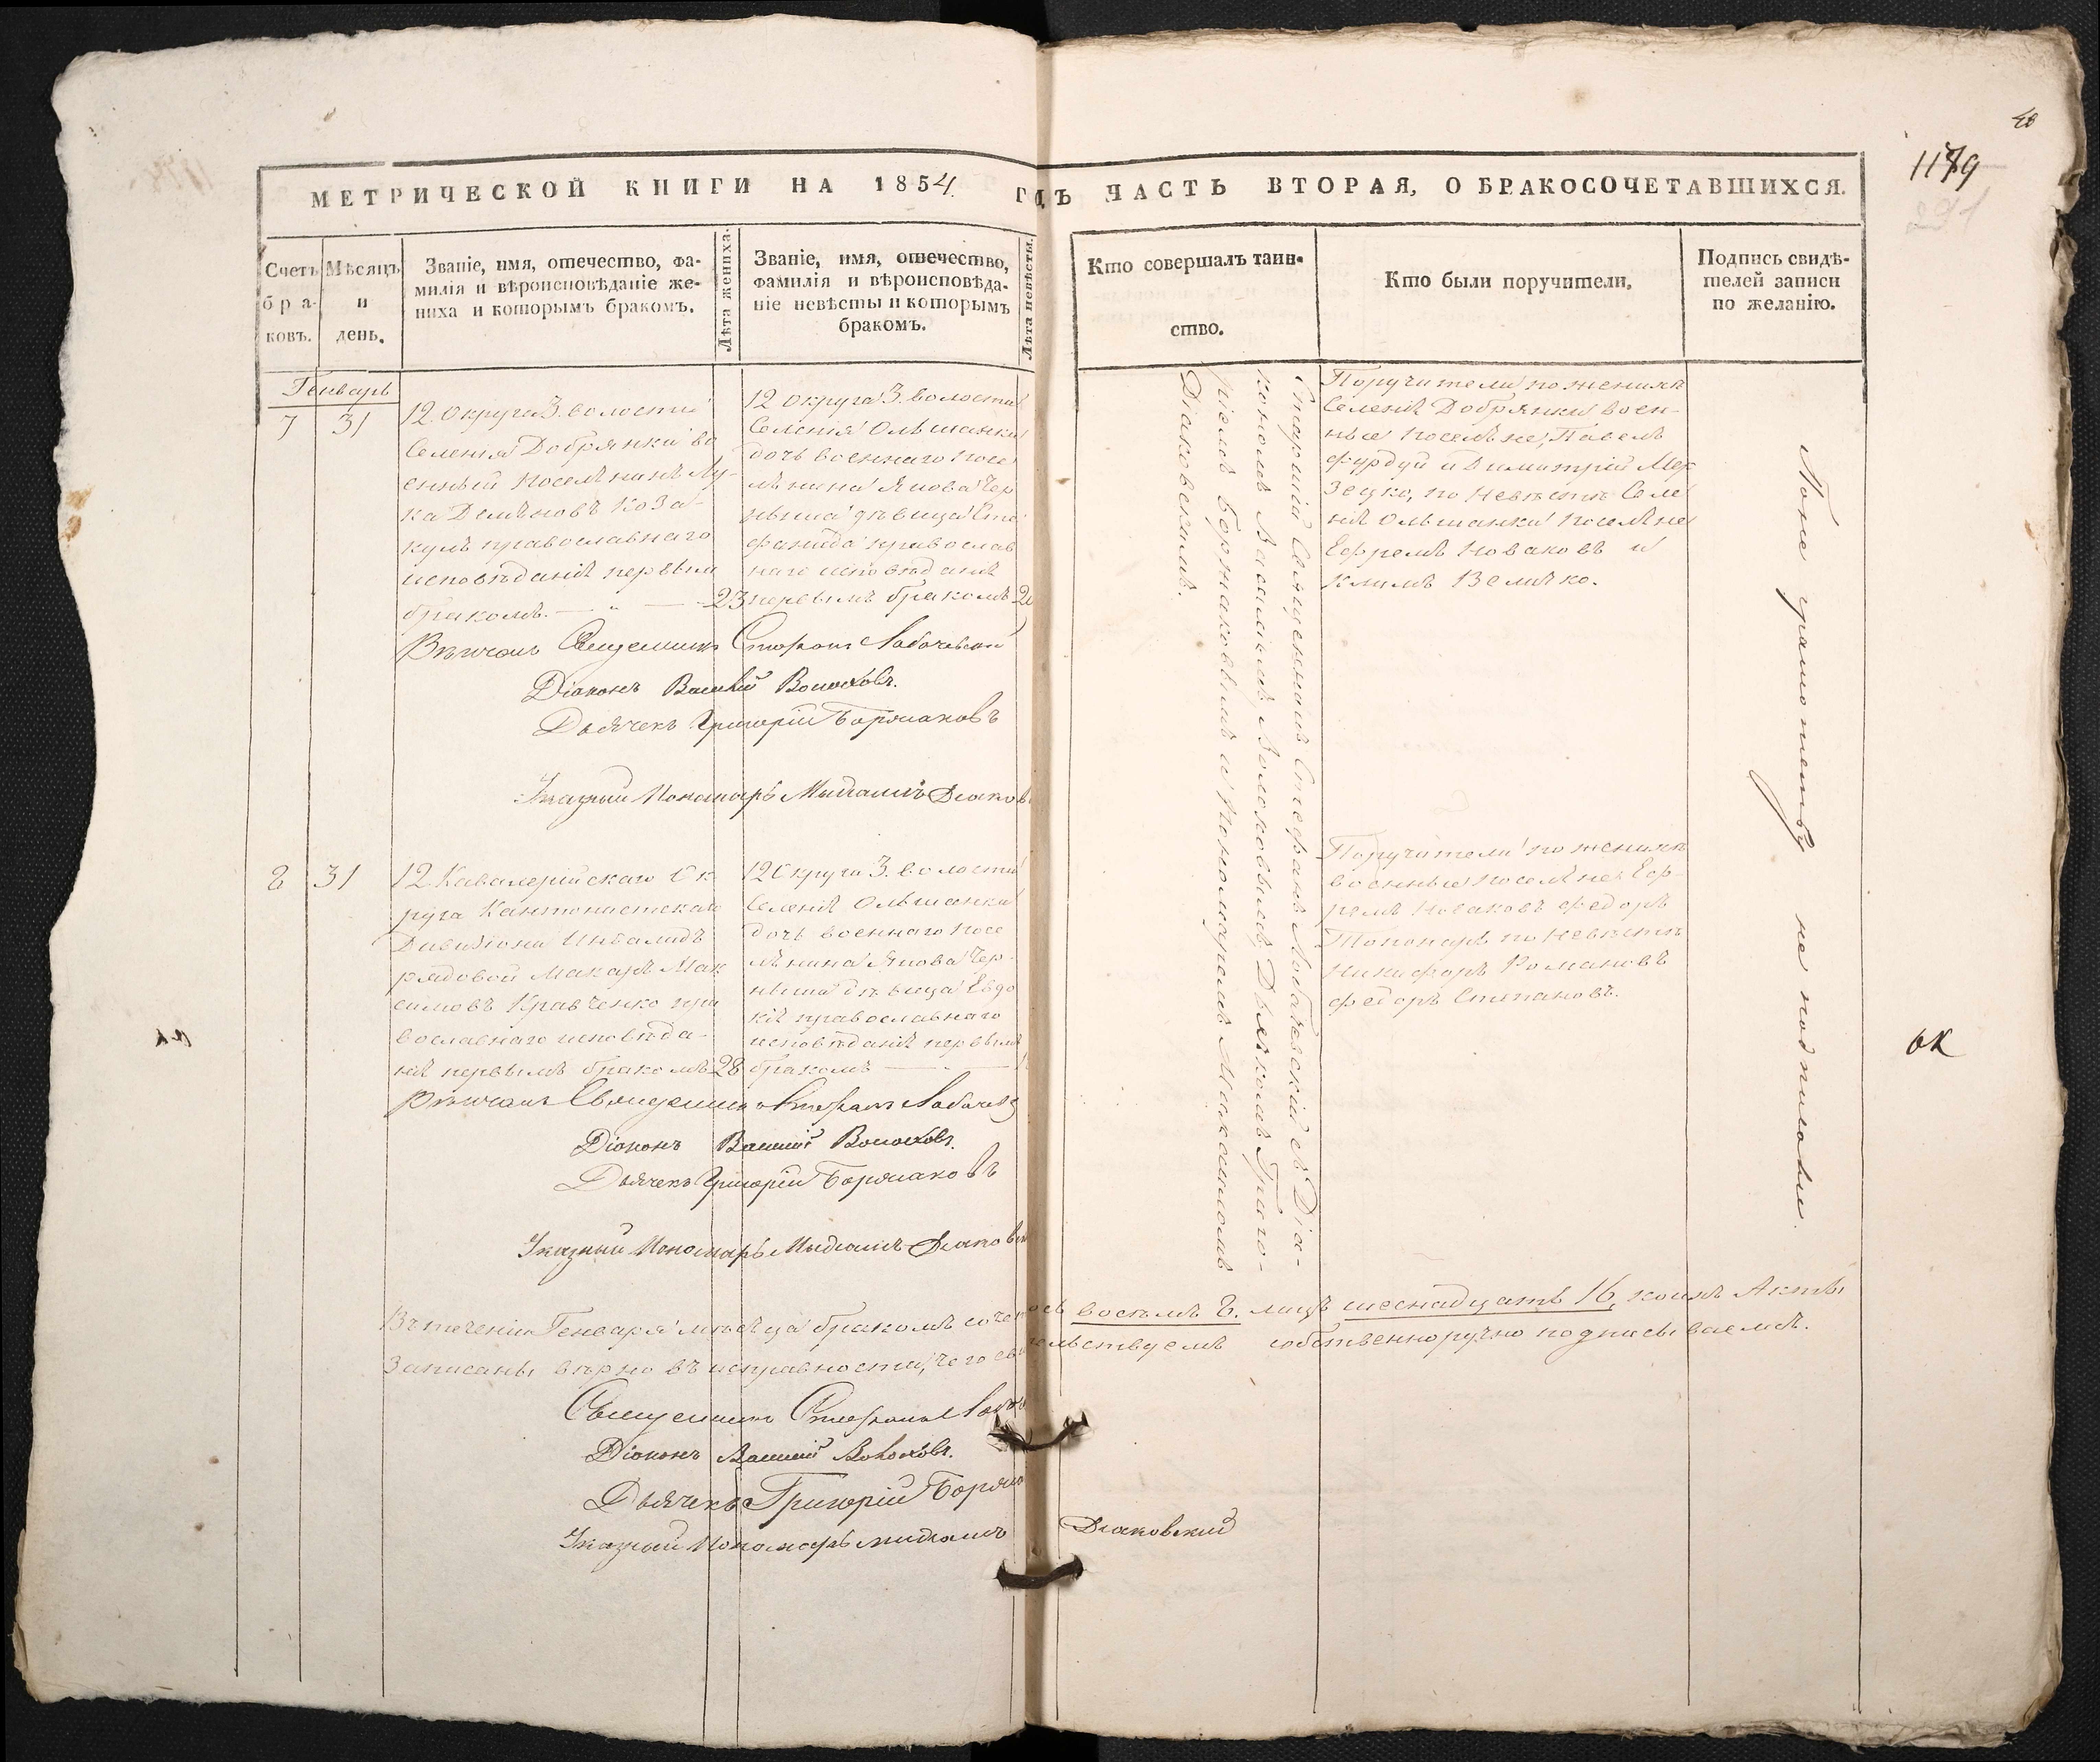 МЕТРИЧЕСКОЙ КНИГИ НА 1854. ГОДЪ ЧАСТЬ ВТОРАЯ, О БРАКОСОЧЕТАВШИХСЯ.
1179
Счетъ бра-ковъ.
Мѣсяцъ и день.
Званіе, имя, отечество, фа-
милія и вѣроисповѣданіе же-
ниха и которымъ бракомъ.
Лѣта жениха.
Званіе, имя, отечество,
фамилія и вѣроисповѣда-
ніе невѣсты и которымъ
бракомъ.
Лѣта невѣсты.
Кто совершалъ таин-
ство.
Кто были поручители.
Подпись свидѣ-
телей записи
по желанію.
Генварь
7 31
12 Округа 3. волости
Селенія Добрянки во
енный поселянинъ Лу-
ка Демяновъ Коза-
кулъ православнаго
исповѣданія первым
бракомъ. 23
12 округа 3. волости
Селенія Ольшанки
дочь военнаго посе
лянина Якова Чер
ныша дѣвица Сте
фанида православ
наго исповѣданія
первымъ бракомъ 20
Вѣнчалъ Священникъ Стефанъ Лобачевскій
Діаконъ Василій Волоховъ.
Дьячекъ Григорій Боржаковъ
Указный Пономарь
Старшій Священникъ Стефанъ Лобачевскій съ Діа-
кономъ Василіемъ Волоховымъ, Дьячкомъ Григо-
ріемъ Боржаковымъ и Пономаремъ
Діаковскимъ.
Поручители по женихѣ
Селенія Добрянки воен-
ные поселяне, Павелъ
Фурдуй и Димитрій Мер
зецко, по Невѣстѣ Селе
нія Ольшанки поселяне
Ефремъ Новаковъ и
Климъ Величко.
По не грамотству не подписались.
8 31
12 Кавалерійскаго Ок
руга Кантонистскаго
Дивизіона Инвалидъ
рядовой Макаръ Мак
симовъ Кравченко пра
вославнаго исповѣда-
нія первымъ бракомъ 28
12 Округа 3. волости
Селенія Ольшанки
дочь военнаго посе
лянина Якова Чер-
ныша дѣвица Евдо
кія православнаго
исповѣданія первымъ
бракомъ
Поручители по женихѣ
военные поселяне Еф-
ремъ Новаковъ Федоръ
Топонаръ по Невѣстѣ
Никифоръ Романовъ
Федоръ Степановъ.
ок
Вѣнчалъ Священникъ Стефанъ Лобачевс
Діаконъ Василій Волоховъ.
Дьячекъ Григорій Боржаковъ
Указный Пономарь
Въ теченіи Генваря мѣсяца бракомъ сочеталось восемь 8. лицъ шеснадцать 16, коихъ Акты
Записаны вѣрно въ исправности, чего свидѣтельствуемъ собственноручно подписываемся.
Священникъ Стефанъ Лобач
Діаконъ Василій Волоховъ.
Дьячекъ Григорій Боржа
Указный Пономарь Діаковский